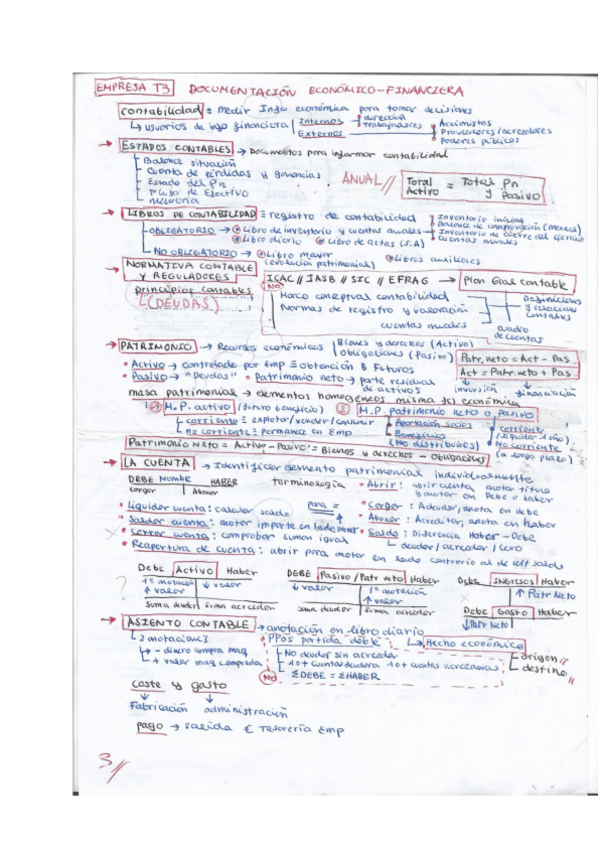 EMPRESA T3 DOCUMENTACIÓN ECONÓMICO-FINANCIERA
contabilidad = medir Info económica para tomar decisiones
↳ usuarios de info financiera Internos dirección Trabajadores
Externos Accionistas Proveedores/acreedores Poderes públicos
→ ESTADOS CONTABLES → Documentos para informar contabilidad
Balance situación
Cuenta de pérdidas y ganancias
Estado del Pn
Flujo de Efectivo
Memoria
ANUAL // Total Activo = Total Pn y Pasivo
→ LIBROS DE CONTABILIDAD = registro de contabilidad
OBLIGATORIO → Libro de inventario y cuentas anuales
Inventario inicial
Balance de comprobación (Mensual)
Inventario de cierre del ejercicio
Cuentas anuales
Libro diario Libro de actas (S.A)
NO OBLIGATORIO → Libro mayor (evolución patrimonial) Libros auxiliares
→ NORMATIVA CONTABLE Y REGULADORES
ICAC // IASB // SIC // EFRAG → Plan Gral contable
NO
principios contables
↳ (DEUDAS)
Marco conceptual contabilidad
Normas de registro y valoración
cuentas anuales
Definiciones y relaciones contables
cuadro de cuentas
→ PATRIMONIO → Recursos económicos Bienes y derechos (Activo)
obligaciones (Pasivo)
Patr. neto = Act - Pas
Act = Patr. neto + Pas
inversión financiación
• Activo → controlado por Emp = obtención B Futuros
• Pasivo → "Deudas" • Patrimonio neto → parte residual de activos
masa patrimoniales → elementos homogéneos misma f(x) económica
1 M.P. activo (futuro beneficio) 2 M.P. patrimonio neto o pasivo
corriente = explotar/vender/consumir
no corriente = Permanece en Emp
Aportación socios
Beneficios (No distribuidos)
corriente (liquidar 1 año)
No corriente (a largo plazo)
Patrimonio Neto = Activo - Pasivo = Bienes y derechos - Obligaciones
→ LA CUENTA → Identificar elemento patrimonial individualmente
DEBE Nombre HABER
cargar Abonar
terminología • Abrir: abrir cuenta anotar título y anotar en Debe o haber
• Liquidar cuenta: calcular saldo
• Cargar: Adeudar, anota en debe
• Saldar cuenta: anotar importe en lado menor para =
• Abonar: Acreditar, anota en haber
• cerrar cuenta: comprobar suman igual
• Saldo: Diferencia Haber - Debe
↳ deudor / acreedor / cero
• Reapertura de cuenta: abrir para anotar en lado contrario al del últ saldo
Debe Activo Haber
1ª anotación ↓ valor
↑ valor
Suma deudor Suma acreedor
?
DEBE Pasivo/Patr neto Haber
↓ valor 1ª anotación
↑ valor
suma deudor suma acreedor
Debe INGRESOS Haber
↑ Patr Neto
Debe Gasto Haber
↓ Patr Neto
→ ASIENTO CONTABLE → anotación en libro diario
↳ 2 anotaciones
- dinero compra maq
+ valor maq comprada
• PPOS partida doble ↳ Hecho económico
No deudor sin acreedor
1 o + cuentas deudora 1 o + cuentas acreedoras
origen //
destino //
NO ΣDEBE = ΣHABER
coste y gasto
Fabricación administración
pago → salida € Tesorería Emp
3 //